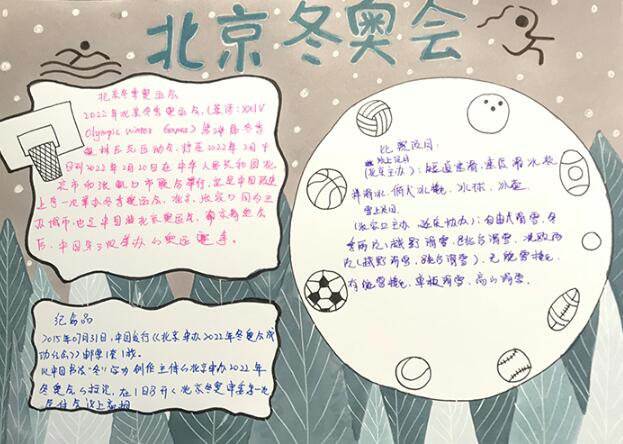 北京冬奥会
北京冬季奥运会
2022年北京冬季奥运会,(英语:XXIV
Olympic Winter Games)第24届冬季
奥林匹克运动会,将在2022年2月4
日到2022年2月20日在中华人民共和国北
京市和张家口市联合举行,这是中国历史
上第一次举办冬季奥运会,北京、张家口同为主
办城市,也是中国继北京奥运会、南京青奥会
后,中国第三次举办的奥运赛事。
纪念品
2015年07月31日,中国发行《北京申办2022年冬奥会成
功纪念》邮票1套1枚。
以中国书法“冬”
北京申办2022年
冬奥会
比赛项目:
冰上项目
(北京主办):短道速滑、速度滑冰、花
样滑冰、冰球、冰壶
雪上项目
(张家口主办、延庆协办):自由式滑雪、冬
季两项(越野滑雪、跳台滑雪、北欧两
项(越野滑雪、跳台滑雪)、无舵雪橇、
有舵雪橇、单板滑雪、高山滑雪。